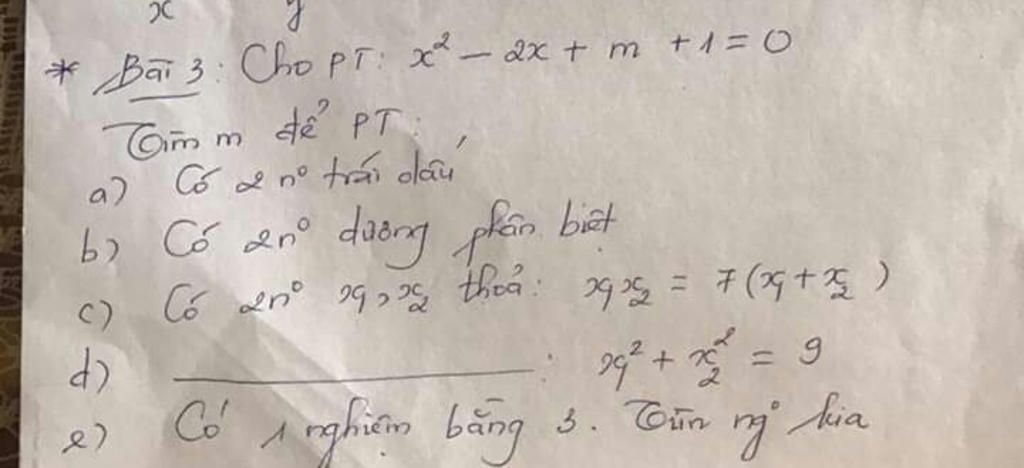 x y
* Bài 3: Cho PT: x² - 2x + m + 1 = 0
Tìm m để PT:
a) Có 2 nº trái dấu
b) Có 2nº dương phân biệt
c) Có 2nº x₁, x₂ thoả: x₁x₂ = 7(x₁ + x₂)
d) ________________: x₁² + x₂² = 9
e) Có 1 nghiệm bằng 3. Tìm ng° kia